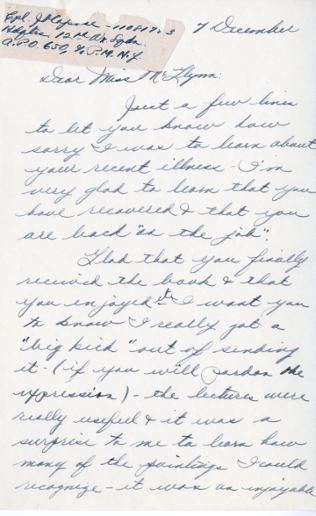 Cpl. J. 
Hdqtrs. 12th Air 
A.P.O. 650, % P.M. N.Y.
7 December
Dear Miss McFlynn:
Just a few lines
to let you know how
sorry I was to learn about
your recent illness - I'm
very glad to learn that you
have recovered & that you
are back "on the job".
Glad that you finally
received the book & that
you enjoyed it - I want you
to know I really got a
"big kick" out of sending
it - (if you will pardon the
expression) - the lectures were
really useful & it was a
surprise to me to learn how
many of the paintings I could
recognize - it was an enjoyable